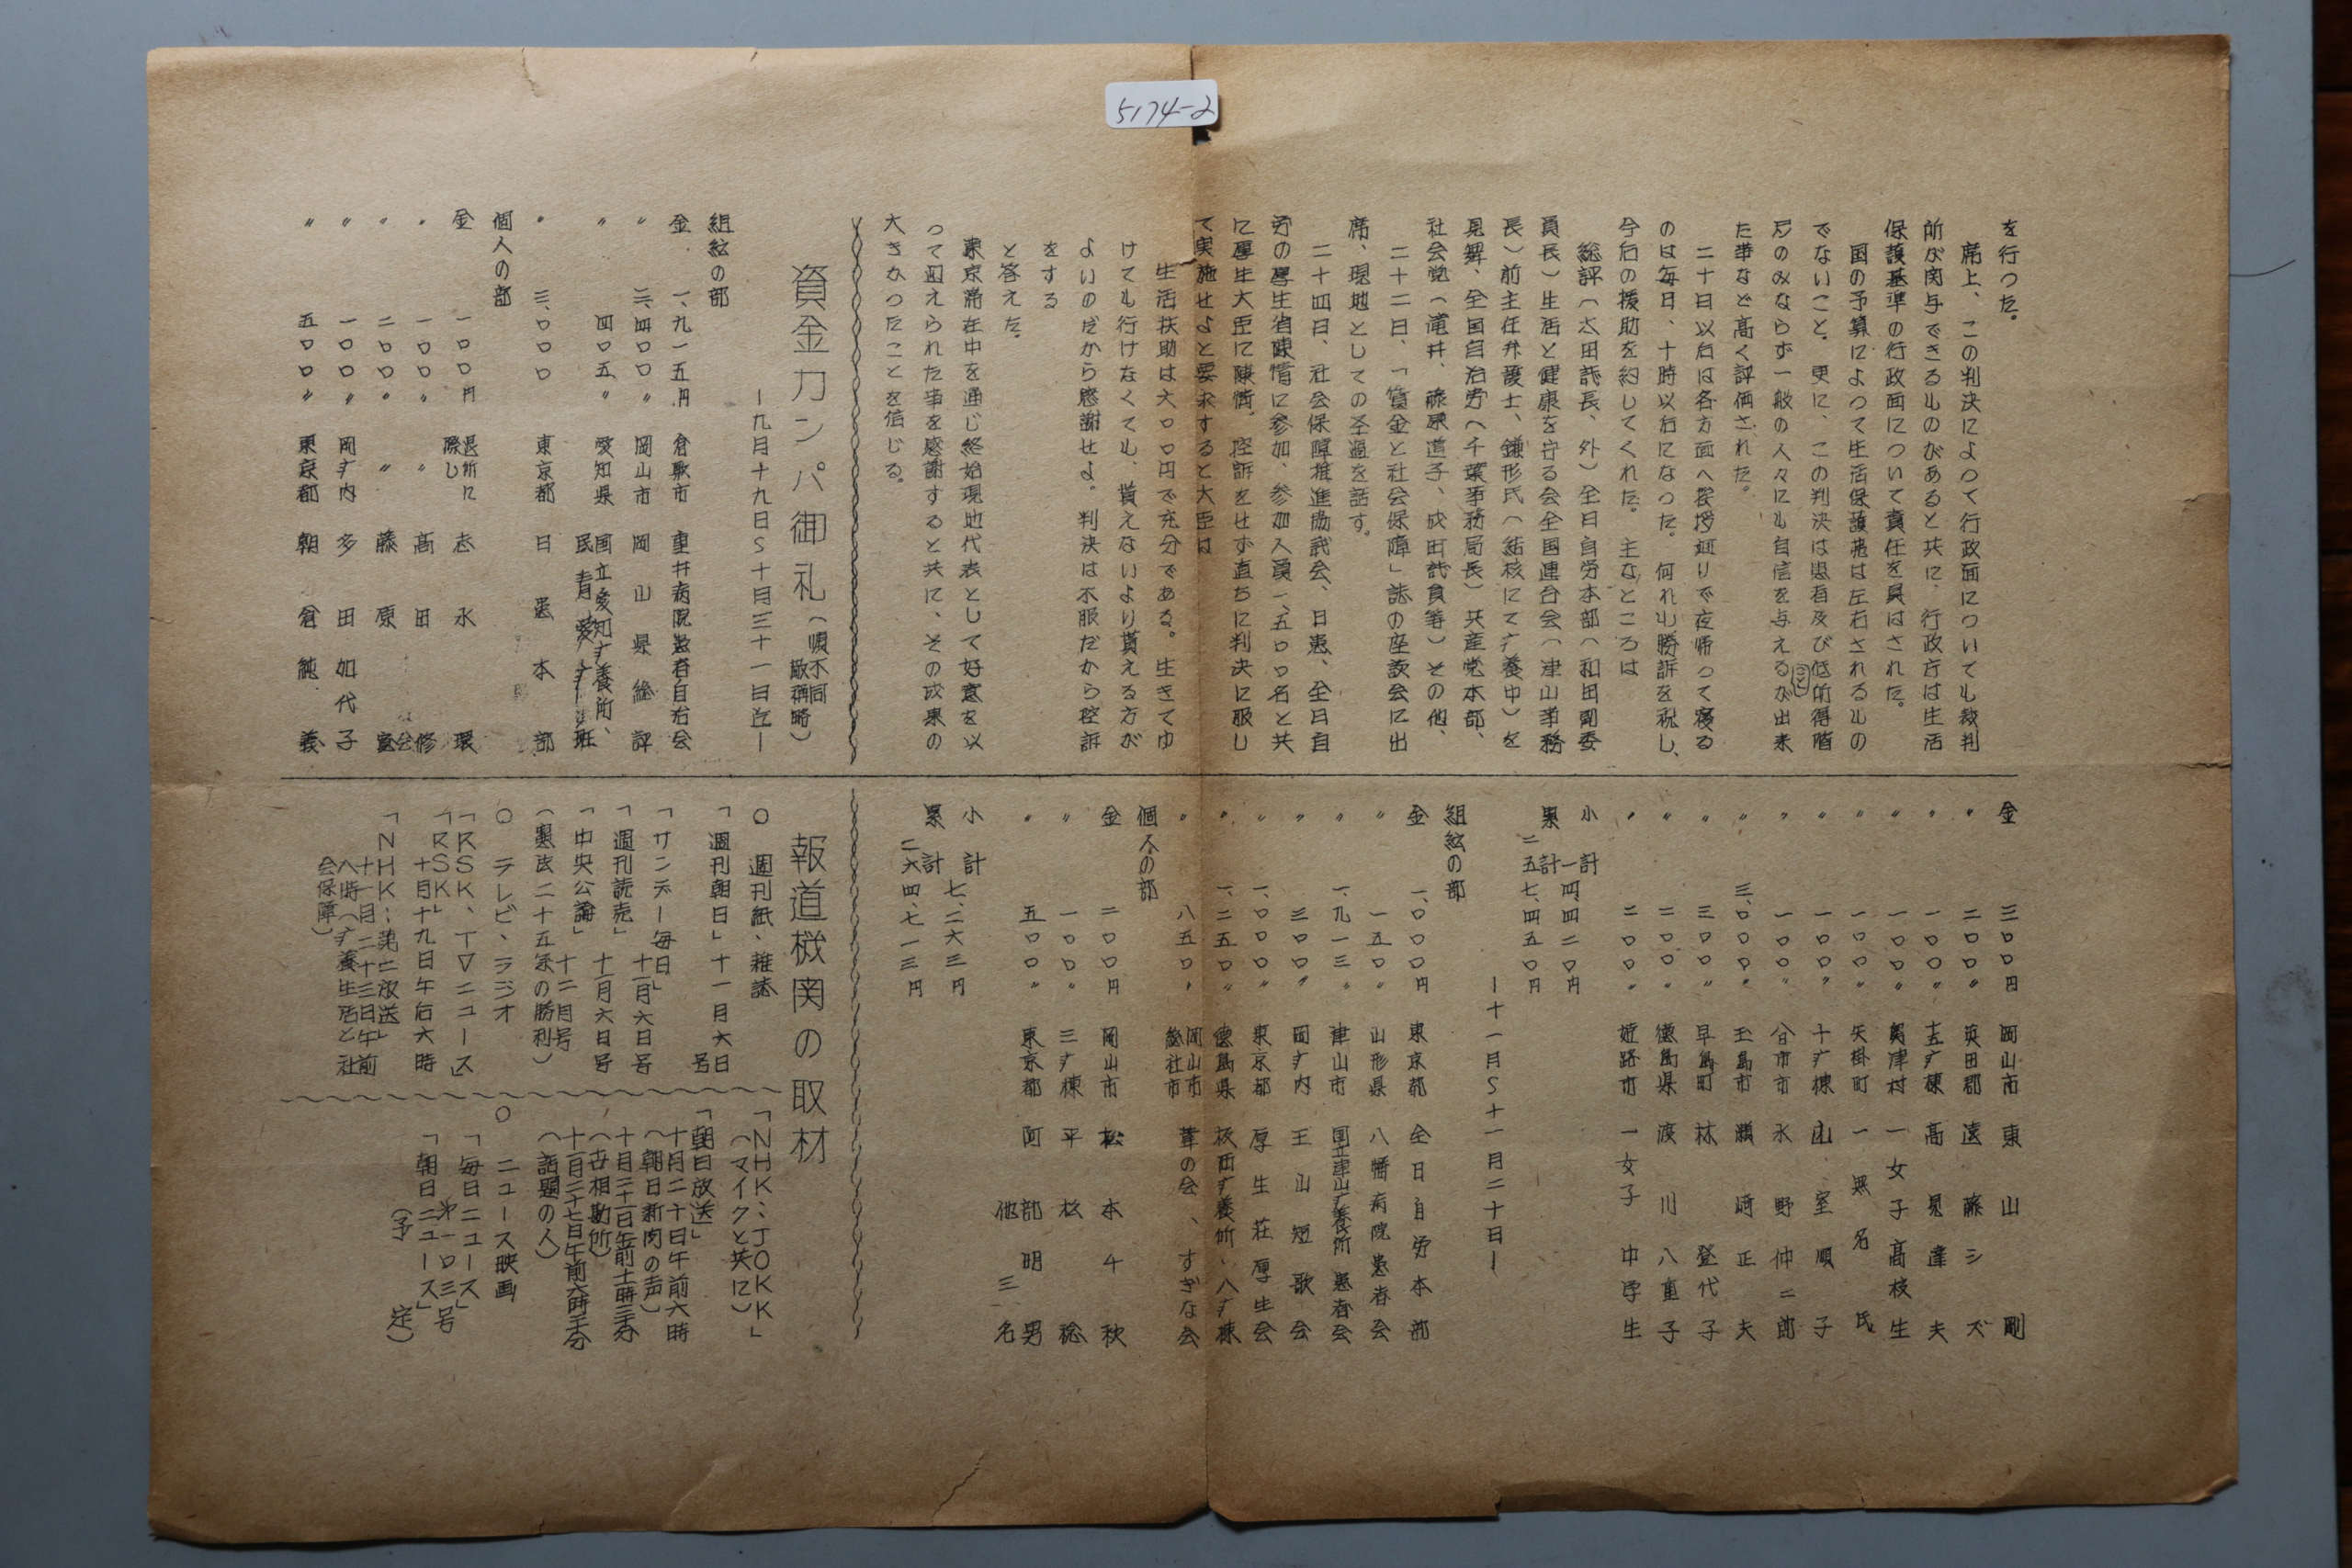 5174-2
を行つた。
席上、この判決によつて行政面についても裁判
所が関与できるものがあると共に、行政庁は生活
保護基準の行政面について責任を負はされた。
国の予算によつて生活保護費は左右されるもの
でないこと。更に、この判決は患者及び低所得階
層のみならず一般の人々にも自信を与えるが出来
こと
た事など高く評価された。
二十日以后は各方面へ挨拶廻りで夜帰って寝る
のは毎日、十時以后になった。何れも勝訴を祝し、
今后の援助を約してくれた。主なところは
総評(太田議長、外)全日自労本部(和田副委
員長)生活と健康を守る会全国連合会(津山事務
長)前主任弁護士、鎌形氏(結核にて疒養中)を
見舞、全国自治労(千葉事務局長)共産党本部、
社会党(滝井、藤原道子、成田議員等)その他、
二十二日、「賃金と社会保障」誌の座談会に出
席、現地としての経過を話す。
二十四日、社会保障推進協議会、日患、全日自
労の厚生省陳情に参加、参加人員一、五〇〇名と共
に厚生大臣に陳情。控訴をせず直ちに判決に服し
て実施せよと要求すると大臣は
生活扶助は六〇〇円で充分である。生きてゆ
けても行けなくても、貰えないより貰える方が
よいのだから感謝せよ。判決は不服だから控訴
をする
と答えた。
東京滞在中を通じ終始現地代表として好意を以
って迎えられた事を感謝すると共に、その成果の
大きかったことを信じる。
資金カンパ御礼(順不同
敬称略)
ー九月十九日S十月三十一日迄ー
組絃の部
金 一、九一五円 倉敷市 重井病院患者自治会
〃 三、四〇〇〃 岡山市 岡山県総評
〃 四〇五〃 愛知県 国立愛知疒養所、
民青愛疒班
〃 三、〇〇〇 東京都 日患本部
個人の部
金 一〇〇円 退所に
際し 志水環
〃 一〇〇〃 〃 高田修
〃 二〇〇〃 〃 藤原
〃 一〇〇〃 岡疒内 多田加代子
〃 五〇〇〃 東京都 朝倉純義
金 三〇〇円 岡山市 東山剛
〃 二〇〇〃 英田郡 遠藤シズ
〃 一〇〇〃 五疒棟 高見達夫
〃 一〇〇〃 賀津村 一女子高校生
〃 一〇〇〃 矢掛町 一無名氏
〃 一〇〇〃 十疒棟 山室順子
〃 一〇〇 水野仲二郎
〃 三、〇〇〇〃 玉島市 瀬崎正夫
〃 三〇〇〃 早島町 林登代子
〃 二〇〇〃 徳島県 渡川八重子
〃 二〇〇〃 姫路市 一女子中学生
小計 一四、四二〇円
累計 二五七、四五〇円
ー十一月S十一月二十日ー
組絃の部
金 一、〇〇〇円 東京都 全日自労本部
〃 一五〇〃 山形県 八幡病院患者会
〃 一、九一三〃 津山市 国立津山疒養所患者会
〃 三〇〇〃 岡疒内 王山短歌会
〃 一、〇〇〇〃 東京都 厚生荘厚生会
〃 一、二五〇〃 徳島県 板西疒養所、八疒棟
〃 八五〇〃 岡山市
総社市 葦の会、すぎな会
個人の部
金 二〇〇円 岡山市 松本千秋
〃 一〇〇〃 三疒棟 平松稔
〃 五〇〇〃 東京都 阿部明男
他三名
小計 七、二六三円
累計 二六四、七一三円
報道機関の取材
〇 週刊紙、雑誌
「週刊朝日」十一月六日
号
「サンデー毎日」
十一月六日号
「週刊読売」 十一月六日号
「中央公論」 十二月号
(憲法二十五条の勝利)
〇 テレビ、ラジオ
「RSK、TVニュース」
「RSK」
十月十九日午后六時
「NHK:第二放送」
十一月二十三日午前
八時(疒養生活と社
会保障)
「NHK:JOKK」
(マイクと共に)
「朝日放送」
十月二十日午前六時
(朝日新聞の声)
十月二十一日午前十一時三十分
(世相助所)
十一月二十七日午前六時三十分
(話題の人)
〇 ニュース映画
「毎日ニュース」
第一〇三号
「朝日ニュース」
(予定)